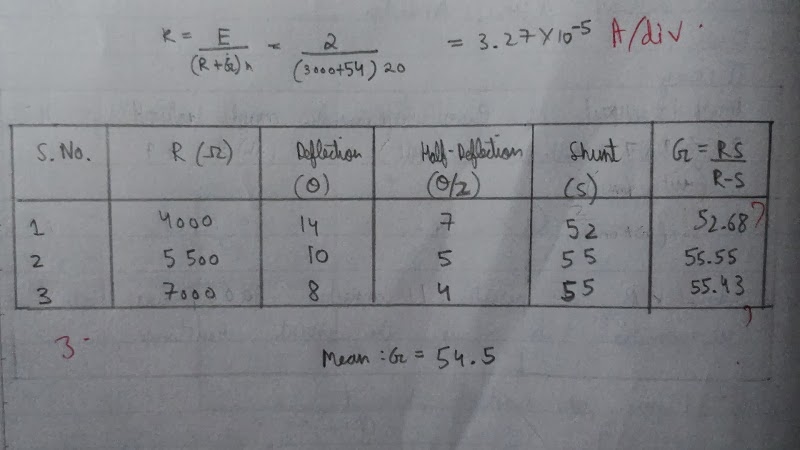 K = E/(R+G)n = 2/(3000+54)20 = 3.27×10⁻⁵ A/div.
S. No. R (Ω) Deflection (θ) Half-Deflection (θ/2) Shunt (S) G = RS/R-S
1 4000 14 7 52 52.68?
2 5500 10 5 55 55.55
3 7000 8 4 55 55.43
?
3-
Mean : G = 54.5